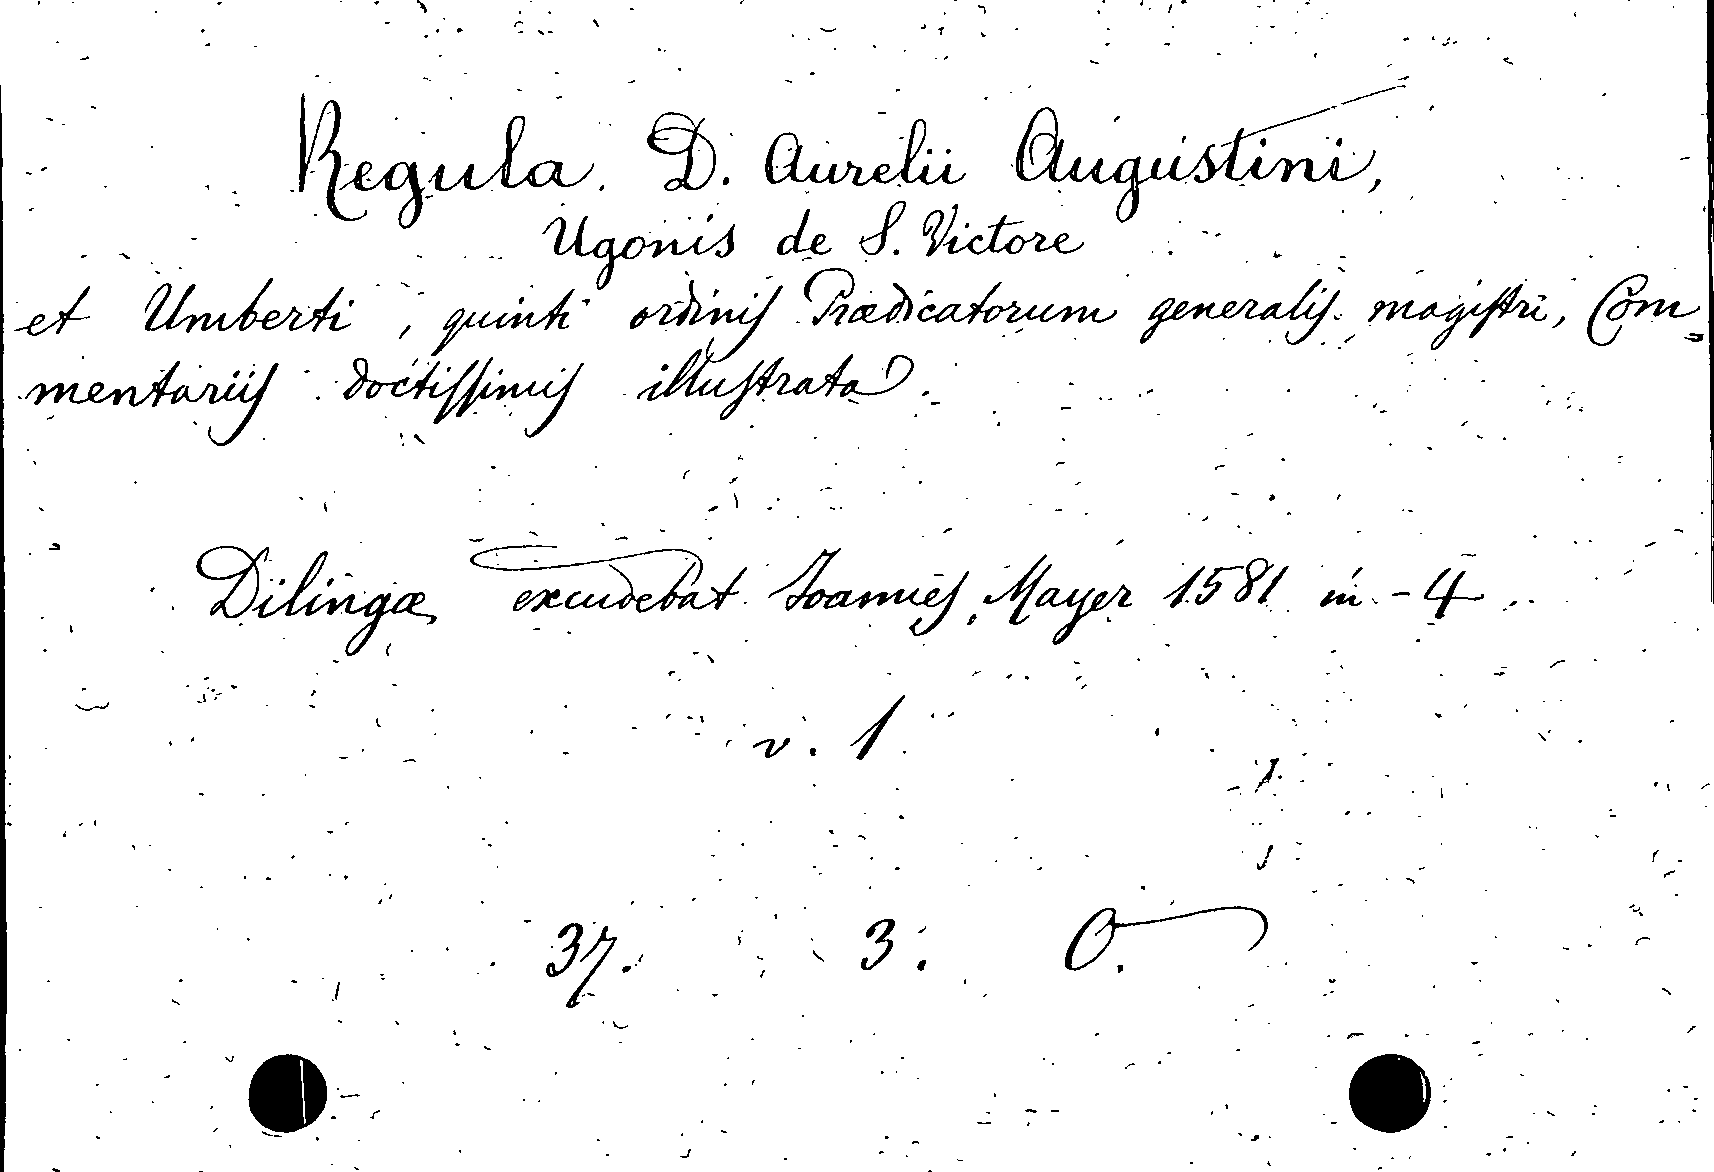 Regula. D. Aurelii Augustini,
Ugonis de S. Victore
et Umberti, quinti ordinis Prædicatorum generalis magistri, Com-
mentariis doctissimis illustrata.
Dilingæ excudebat Joannes Mayer 1581 in-4
v. 1
37. 3. O.